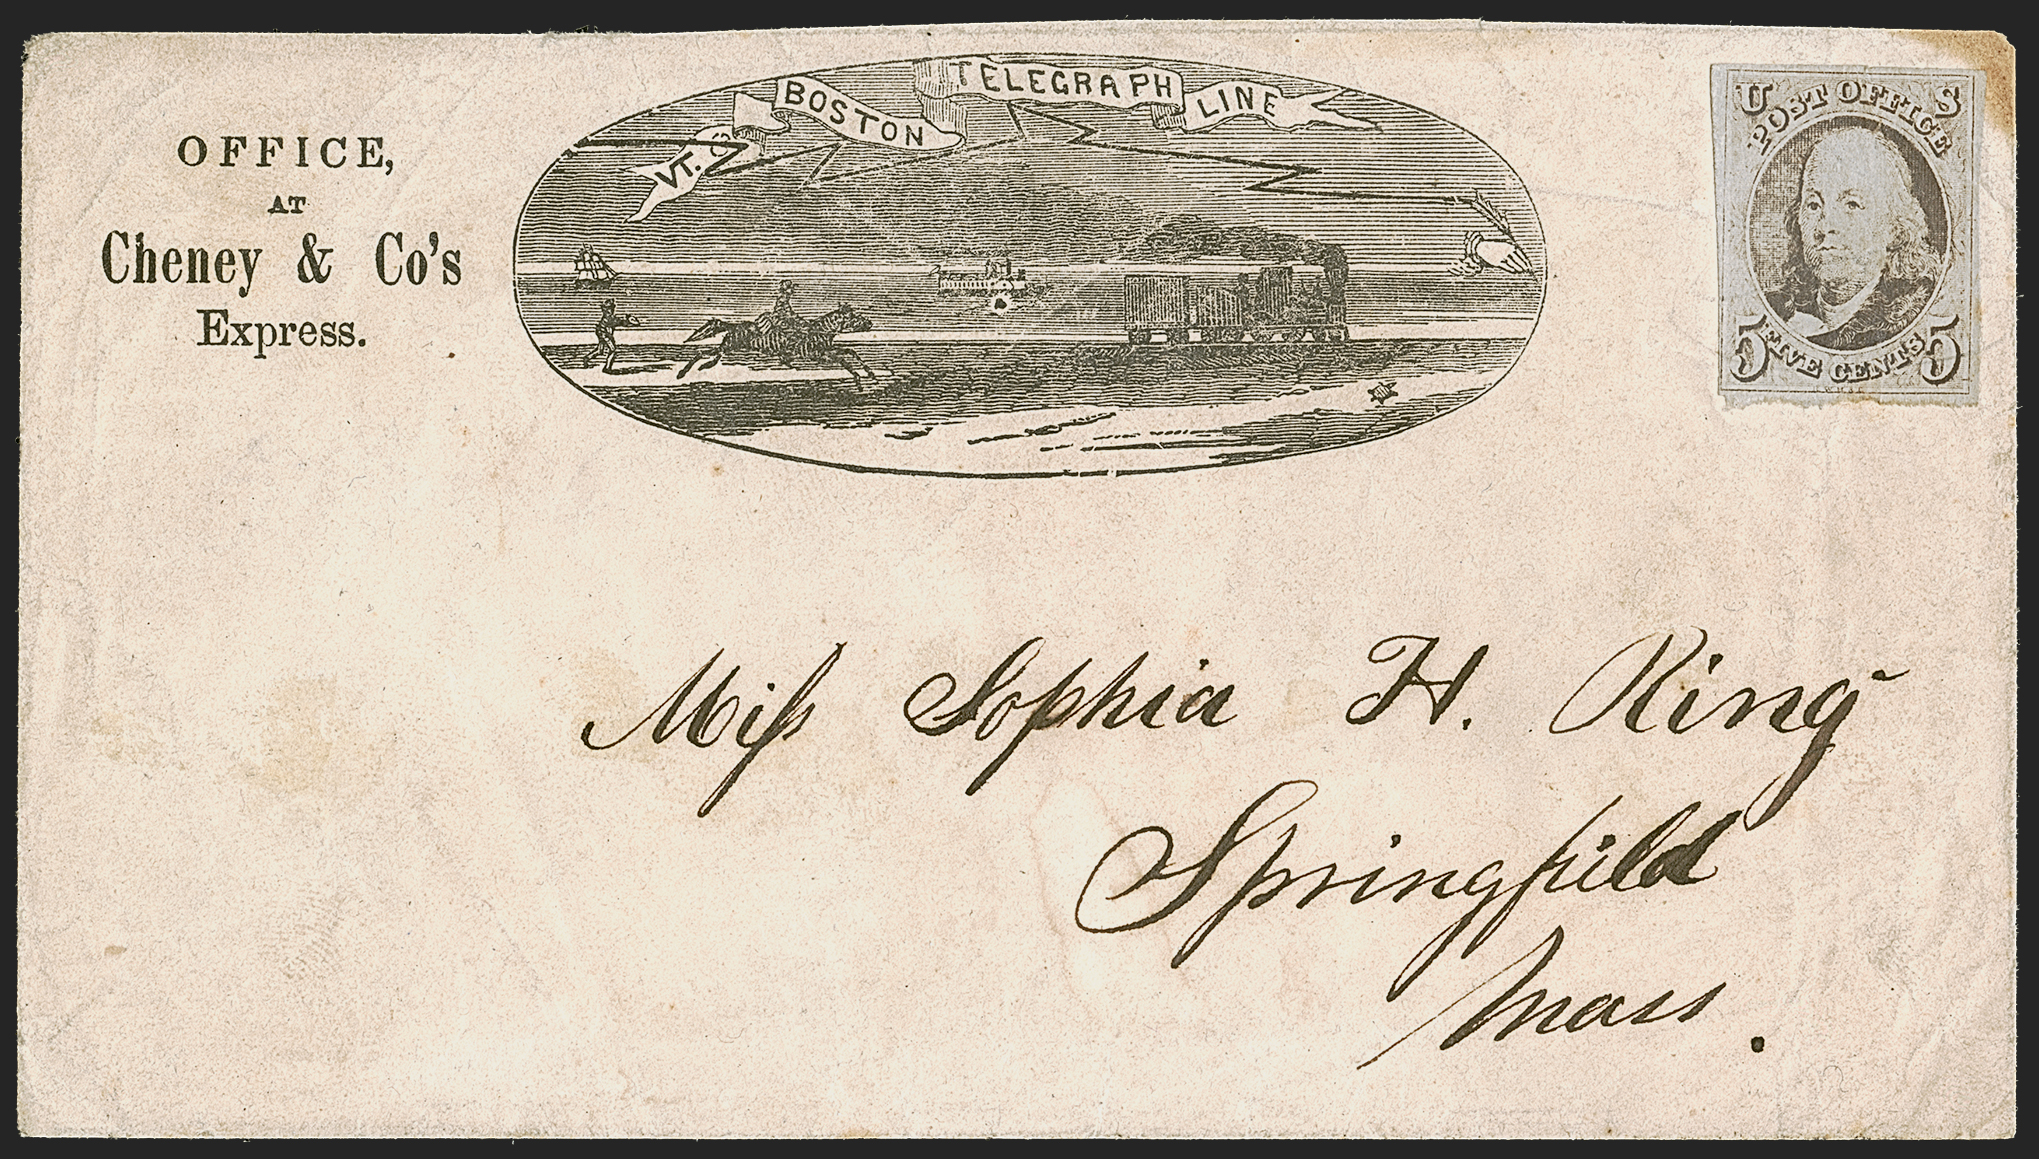 OFFICE,
AT
Cheney & Co's
Express.
VT. &
BOSTON
TELEGRAPH
LINE
U S
POST OFFICE
5 FIVE CENTS 5
Miss Sophia H. King
Springfield
Mass.